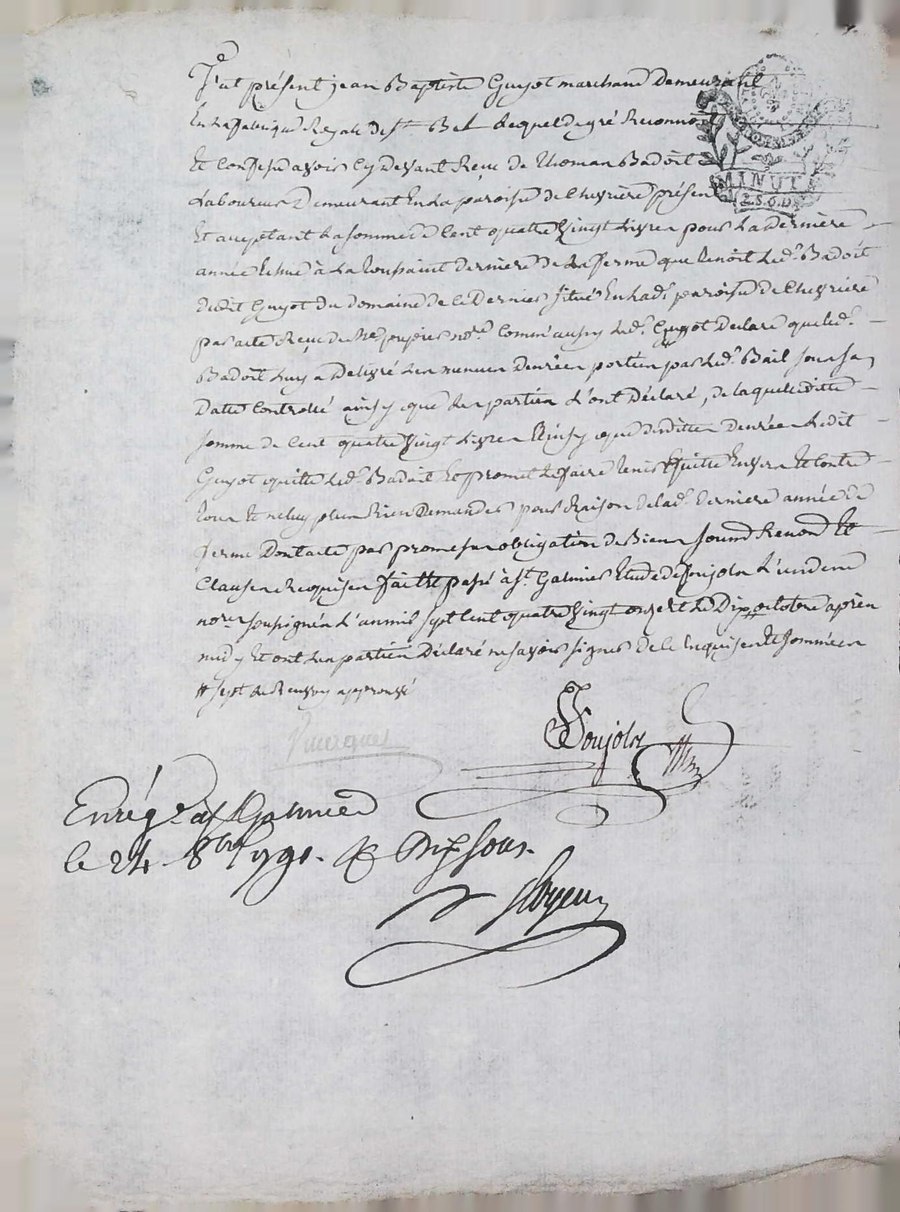 Fut présent jean Baptiste Guyot marchand Demeurant
En La fabrique Royale de st. Bel Lequel de gré Reconnoit
Et Confesse avoir Cy Devant Reçu de Thomas Badoit
Laboureur Demeurant En La paroisse de Chevriere présent
Et acceptant La somme de Cent quatre Vingt Livres pour La Derniere
année Echue à La toussaint derniere de La ferme que tenoit Led. Badoit
dudit Guyot du domaine de ce Dernier situé En Lad. paroisse de Chevriere
par acte Reçu de Me poujolx nore. Comme aussy Led. Guyot Declare que Led.
Badoit Luy a Delivré Les menues denrées portées par Led. Bail sous sa
Datte Controllé ainsy que Les parties L'ont Déclaré, de laquelle ditte
somme de Cent quatre Vingt Livres Ainsy que desdittes denrées Ledit
Guyot quitte Led. Badoit Et promet Le faire tenir quitte Envers Et Contre
tous Et ne Luy plus Rien Demander pour Raison de Lad. derniere année de
ferme Dont acte par promesse obligation de Biens soumd Renond Et
Clauses Requises fait Et passé à St. Galmier Etude de Poujolx L'un de
nores soussignés L'an mil sept Cent quatre Vingt onze Et Le Dix octobre après
midy Et ont Les parties Déclaré ne savoir signer de Ce Enquises Et sommées
sept de Renvoy approuvé
Poujolx
Enrég. à St Galmier
le 24 8bre 1791. R dix sous.